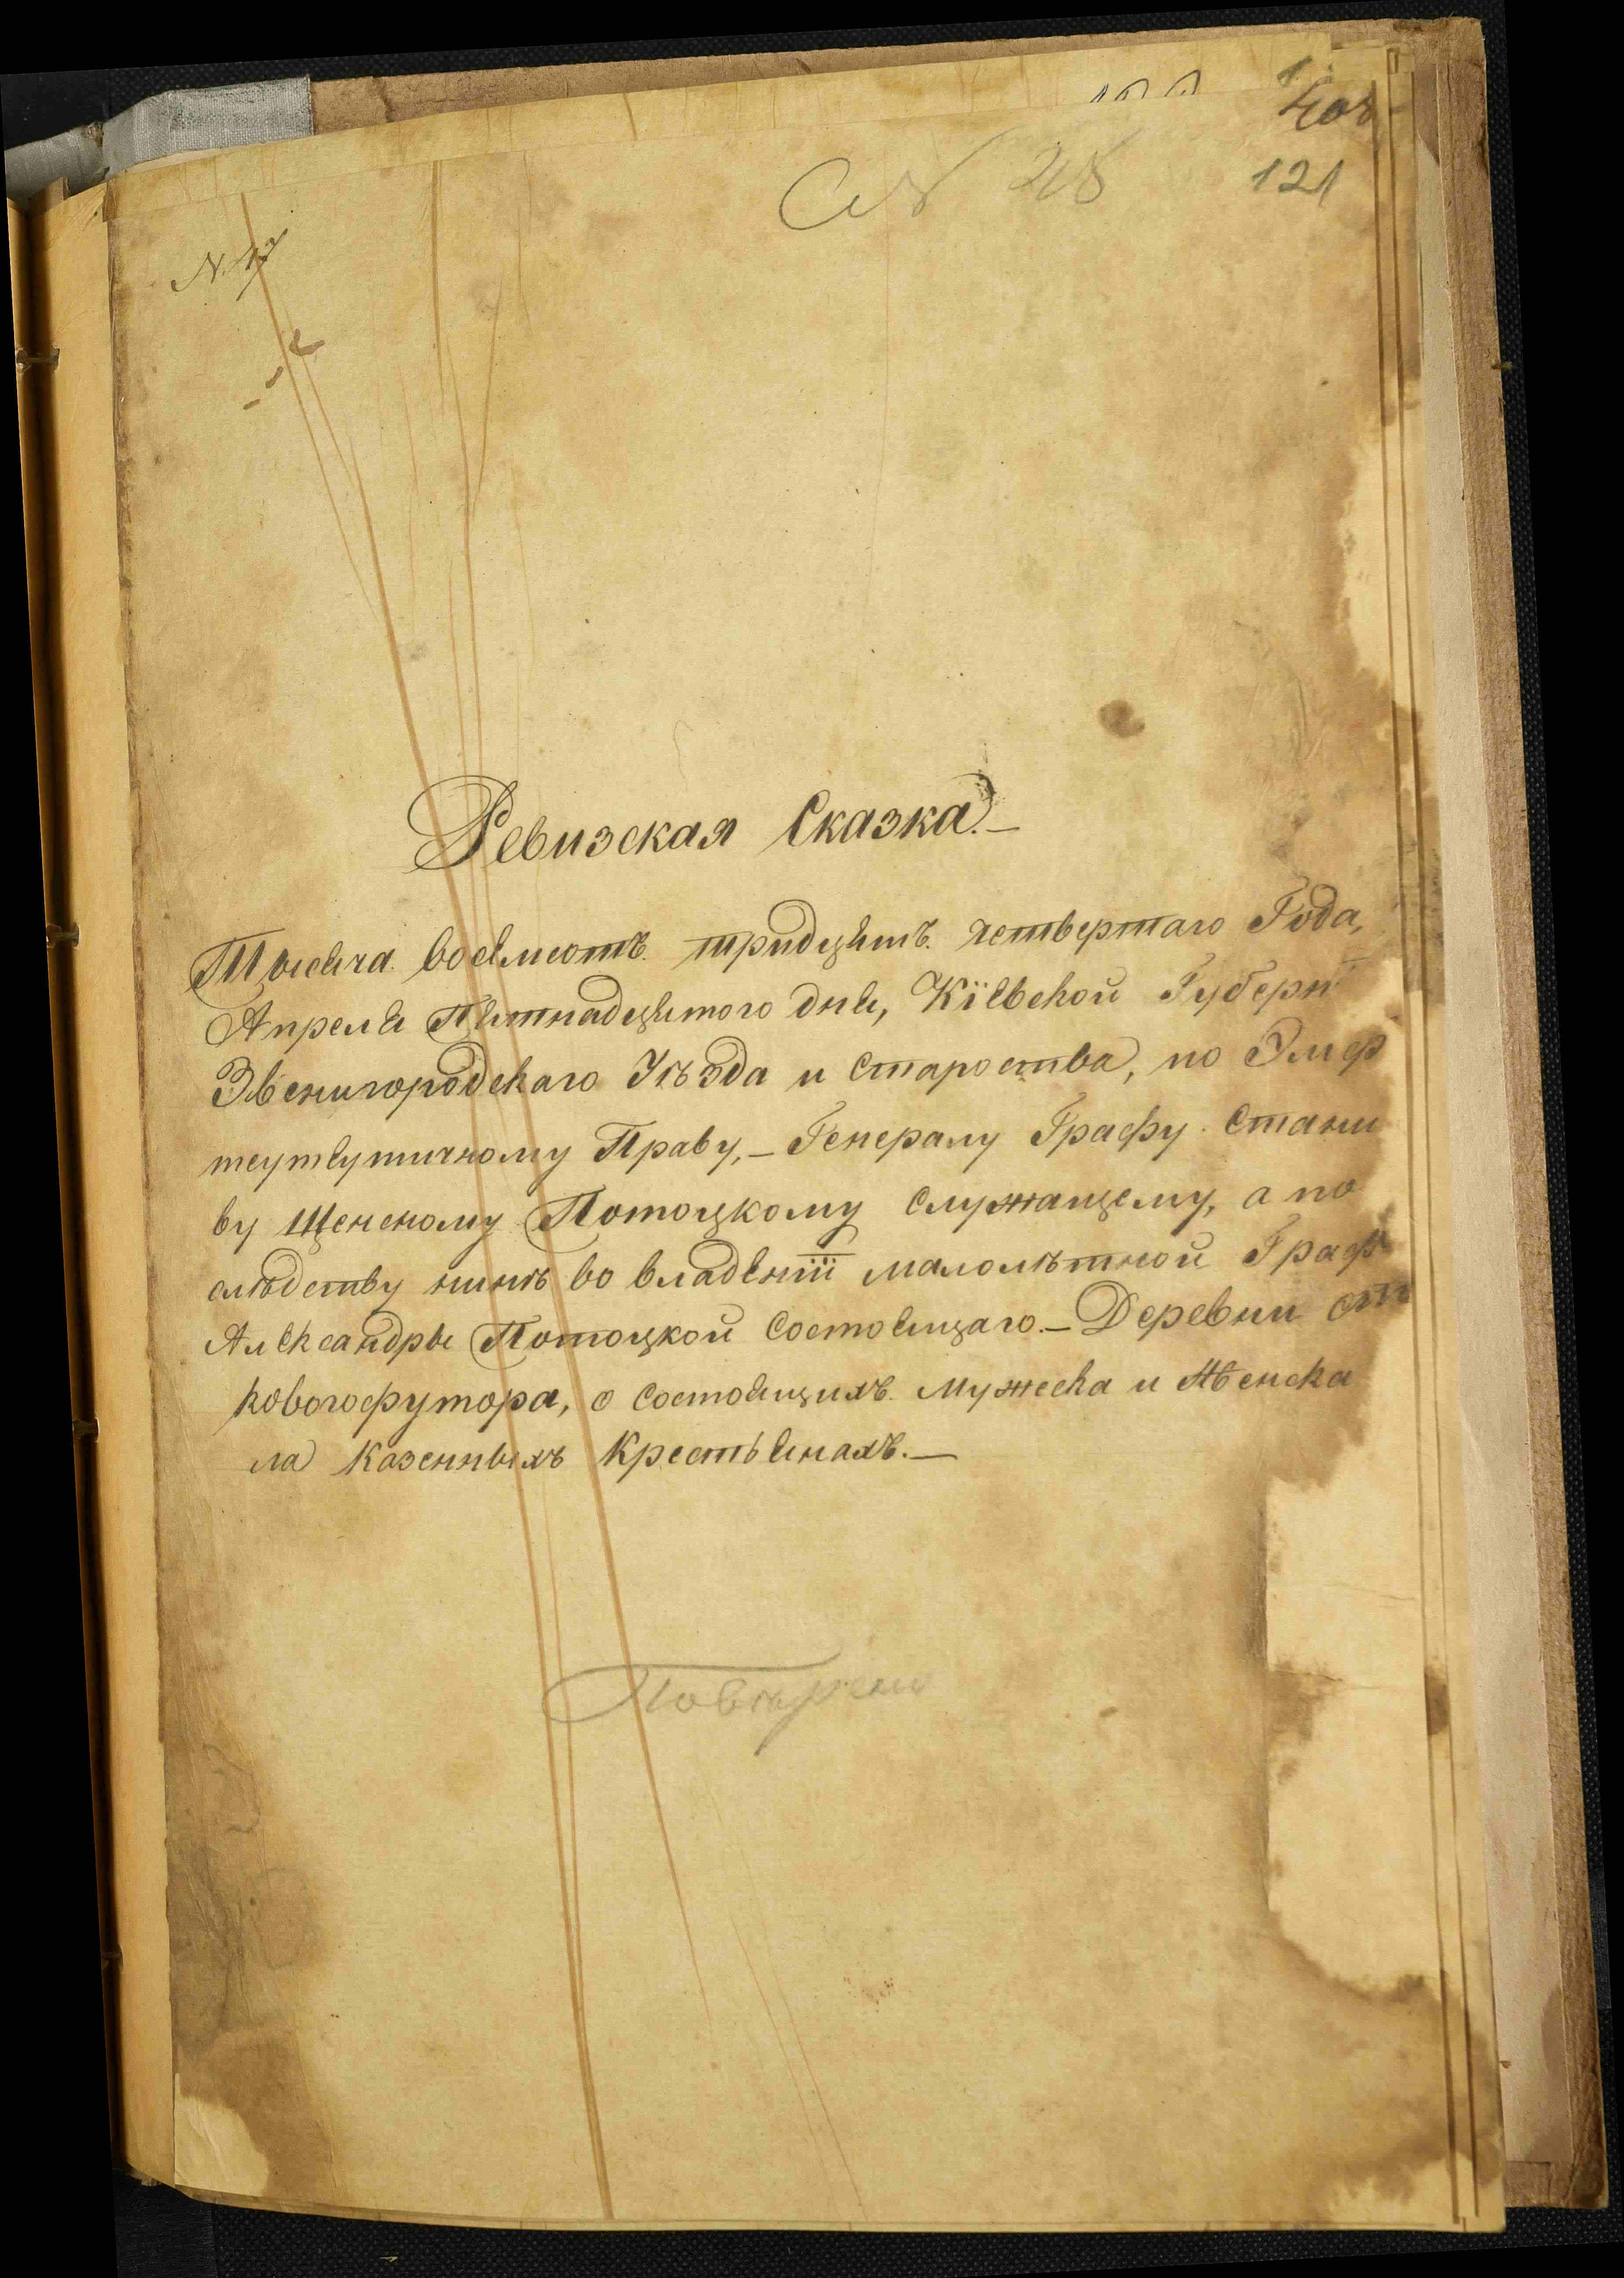 408
121
N. 17
Ревизская Сказка.—
Тысяча восемсотъ тридцять четвертаго Года,
Апреля Пятнадцятого дня, Кіевской Губерн
Звенигородскаго Уѣзда и Староства, по Эмф
теутлутичному Праву,— Генералу Графу Стани
ву Щенсному Потоцкому служащему, а по
слѣдству нинѣ во владѣнііі малолѣтной Граф
Александры Потоцкой Состоящаго.— Деревни
ковогофутора, о состоящихъ Мужеска и Женска
ла Казенныхъ Крестьянахъ.—